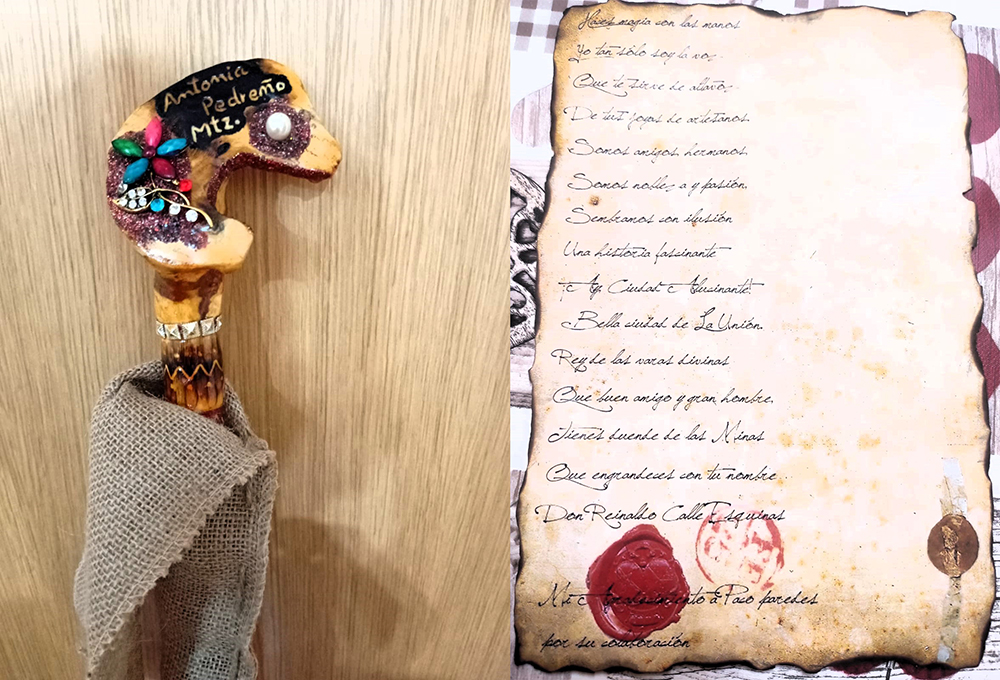 Antonia
Pedreño
Mtz.
Haces magia con las manos
Yo tan sólo soy la voz
Que te sirve de altavoz
De tus joyas de artesanos.
Somos amigos, hermanos.
Somos nobleza y pasión.
Sembramos con ilusión
Una historia fascinante
¡Ay, Ciudad Alusinante!
Bella ciudad de La Unión.
Rey de las varas divinas
Que buen amigo y gran hombre.
Tienes duende de las Minas
Que engrandeces con tu nombre...
Don Reinaldo Calle Esquinas
Mi Agradecimiento a Paco paredes
por su colaboración